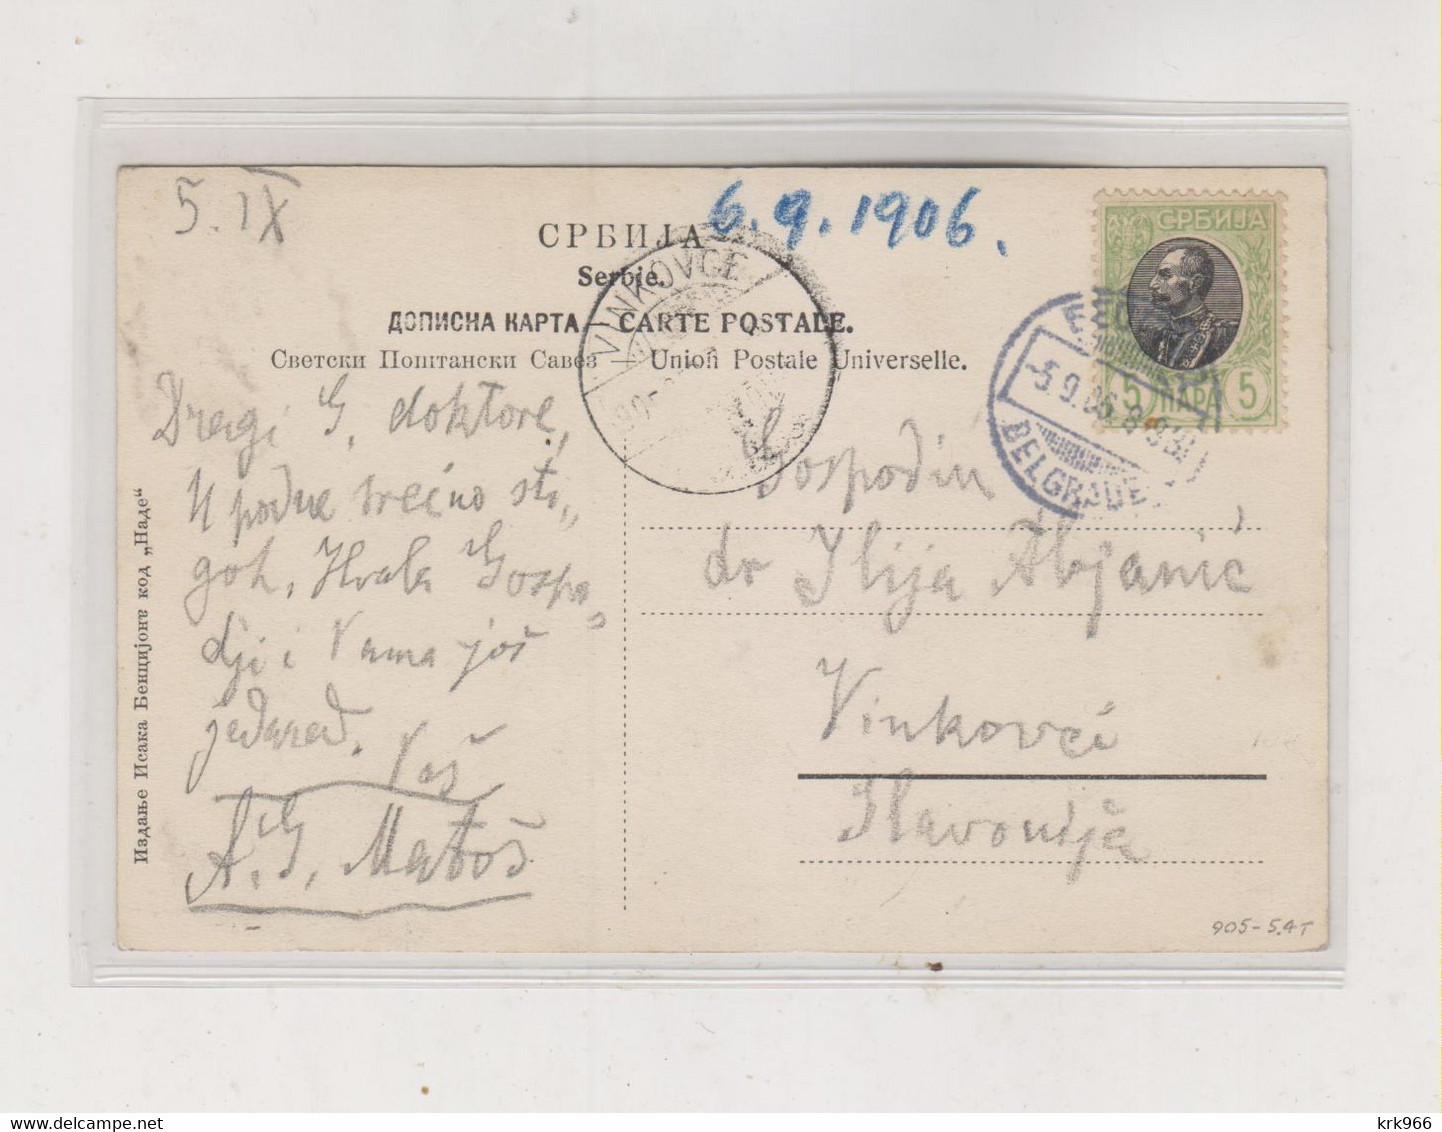 5. IX
6.9.1906.
СРБИЈА
Serbie.
ДОПИСНА КАРТА — CARTE POSTALE.
Светски Поштански Савез — Union Postale Universelle.
СРБИЈА
5 ПАРА 5
VINKOVCE
-5.9.06.8-9
BELGRADE
Dragi G. doktore,
U podne srećno sti„
goh. Hvala Gospo„
dji i Vama još
jedared.
Vaš
A. G. Matoš
Gospodin
dr Ilija Abjanić
Vinkovci
Slavonija
Издање Исака Бенцијона код „Наде“
905-5.4T
delcampe.net
krk966